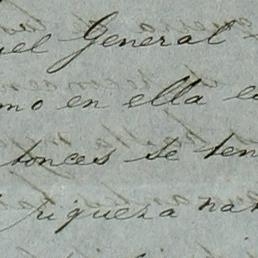 uel General
mo en ella
tonces se ten
riqueza na